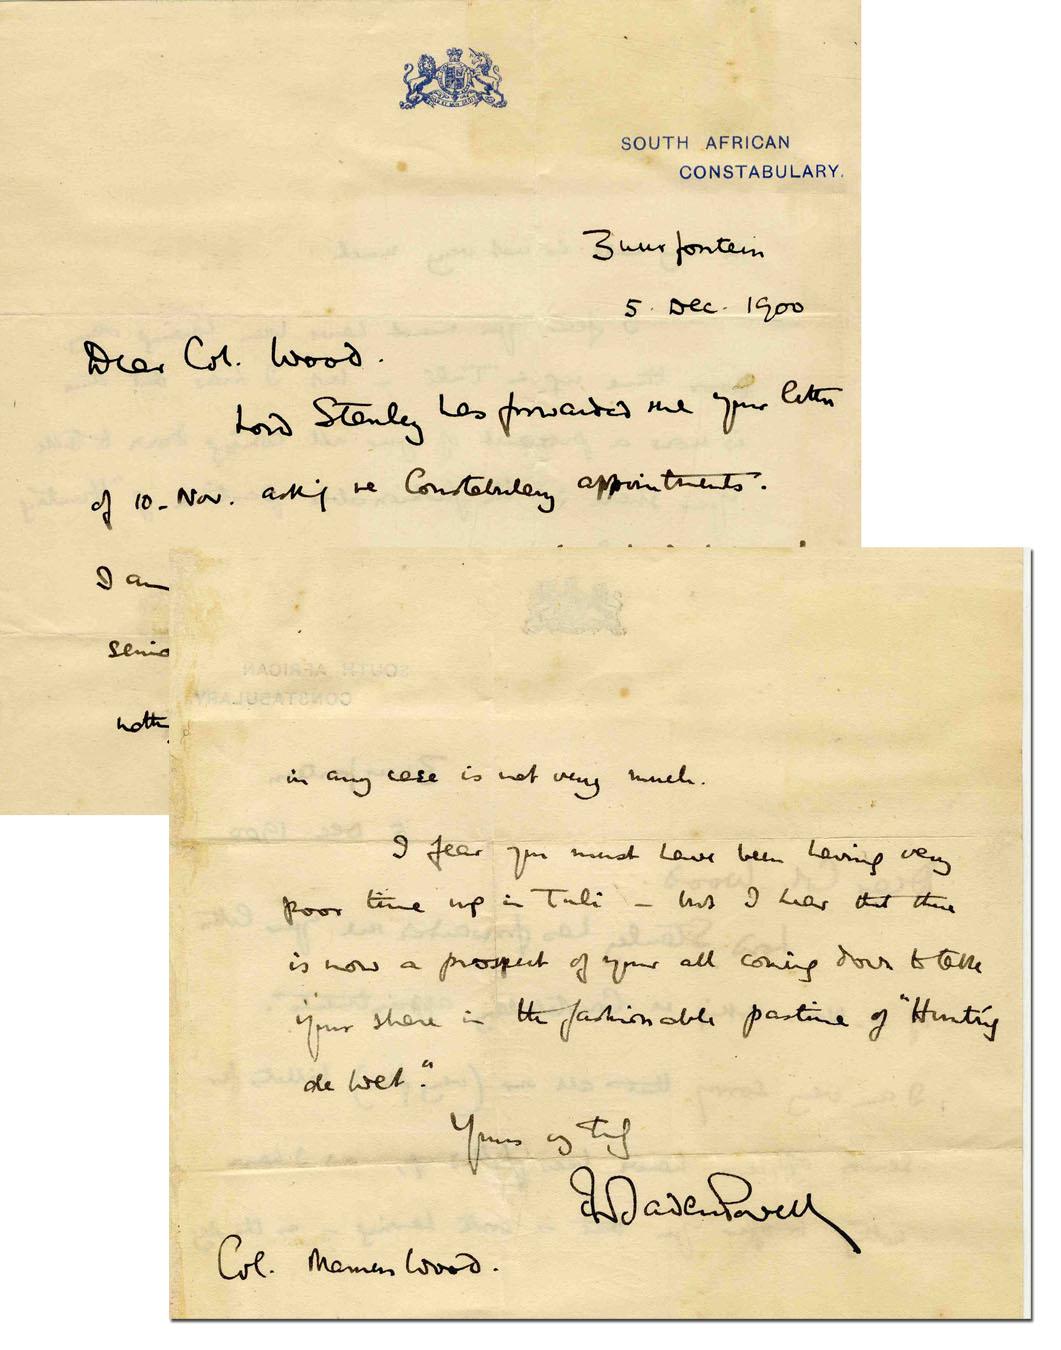 SOUTH AFRICAN
CONSTABULARY.
Zuurfontein
5. Dec. 1900
Dear Col. Wood.
Lord Stanley has forwarded me your letter
of 10. Nov. asking re Constabulary appointments.
I am
senio
noth
in any case is not very much.
I fear you must have been having very
poor time up in Tuli - but I hear that there
is now a prospect of your all coming down to take
your share in the fashionable pastime of "Hunting
de Wet."
Yours
R Baden Powell
Col. Wood.
SOUTH AFRICAN
CONSTABULARY.